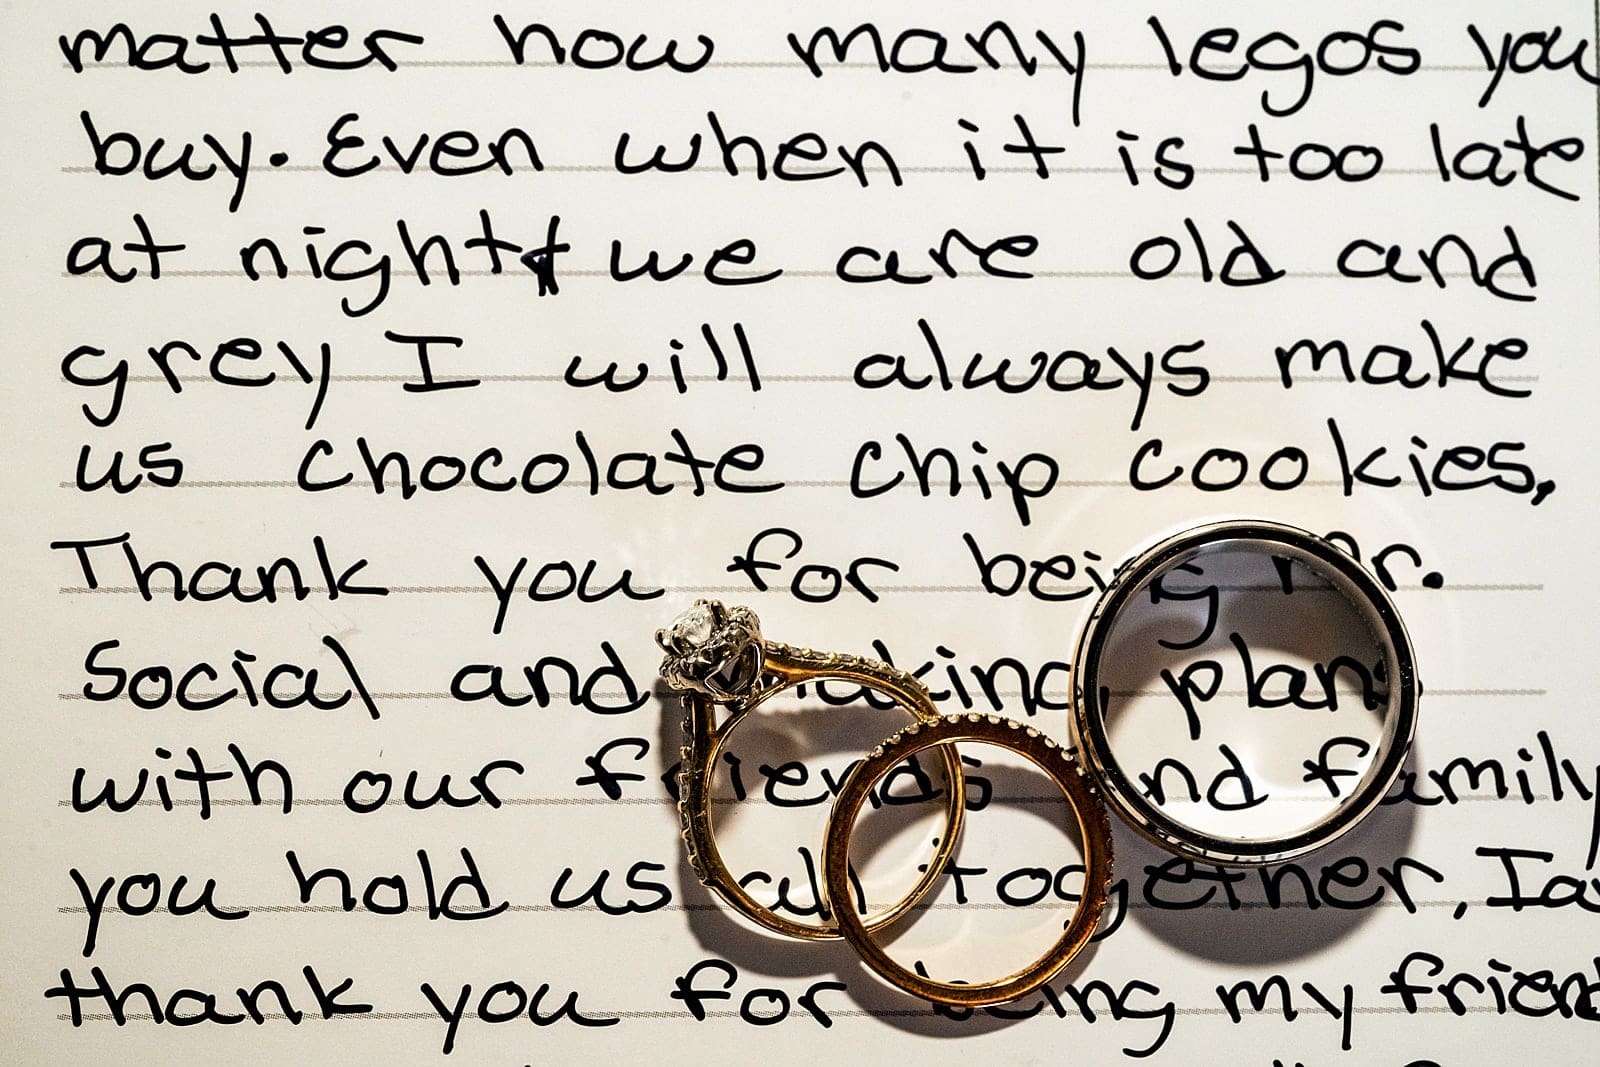 matter how many legos you
buy. Even when it is too late
at night & we are old and
grey I will always make
us chocolate chip cookies,
Thank you for being mr.
Social and making plans
with our friends and family
you hold us all together, Ia
thank you for being my friend